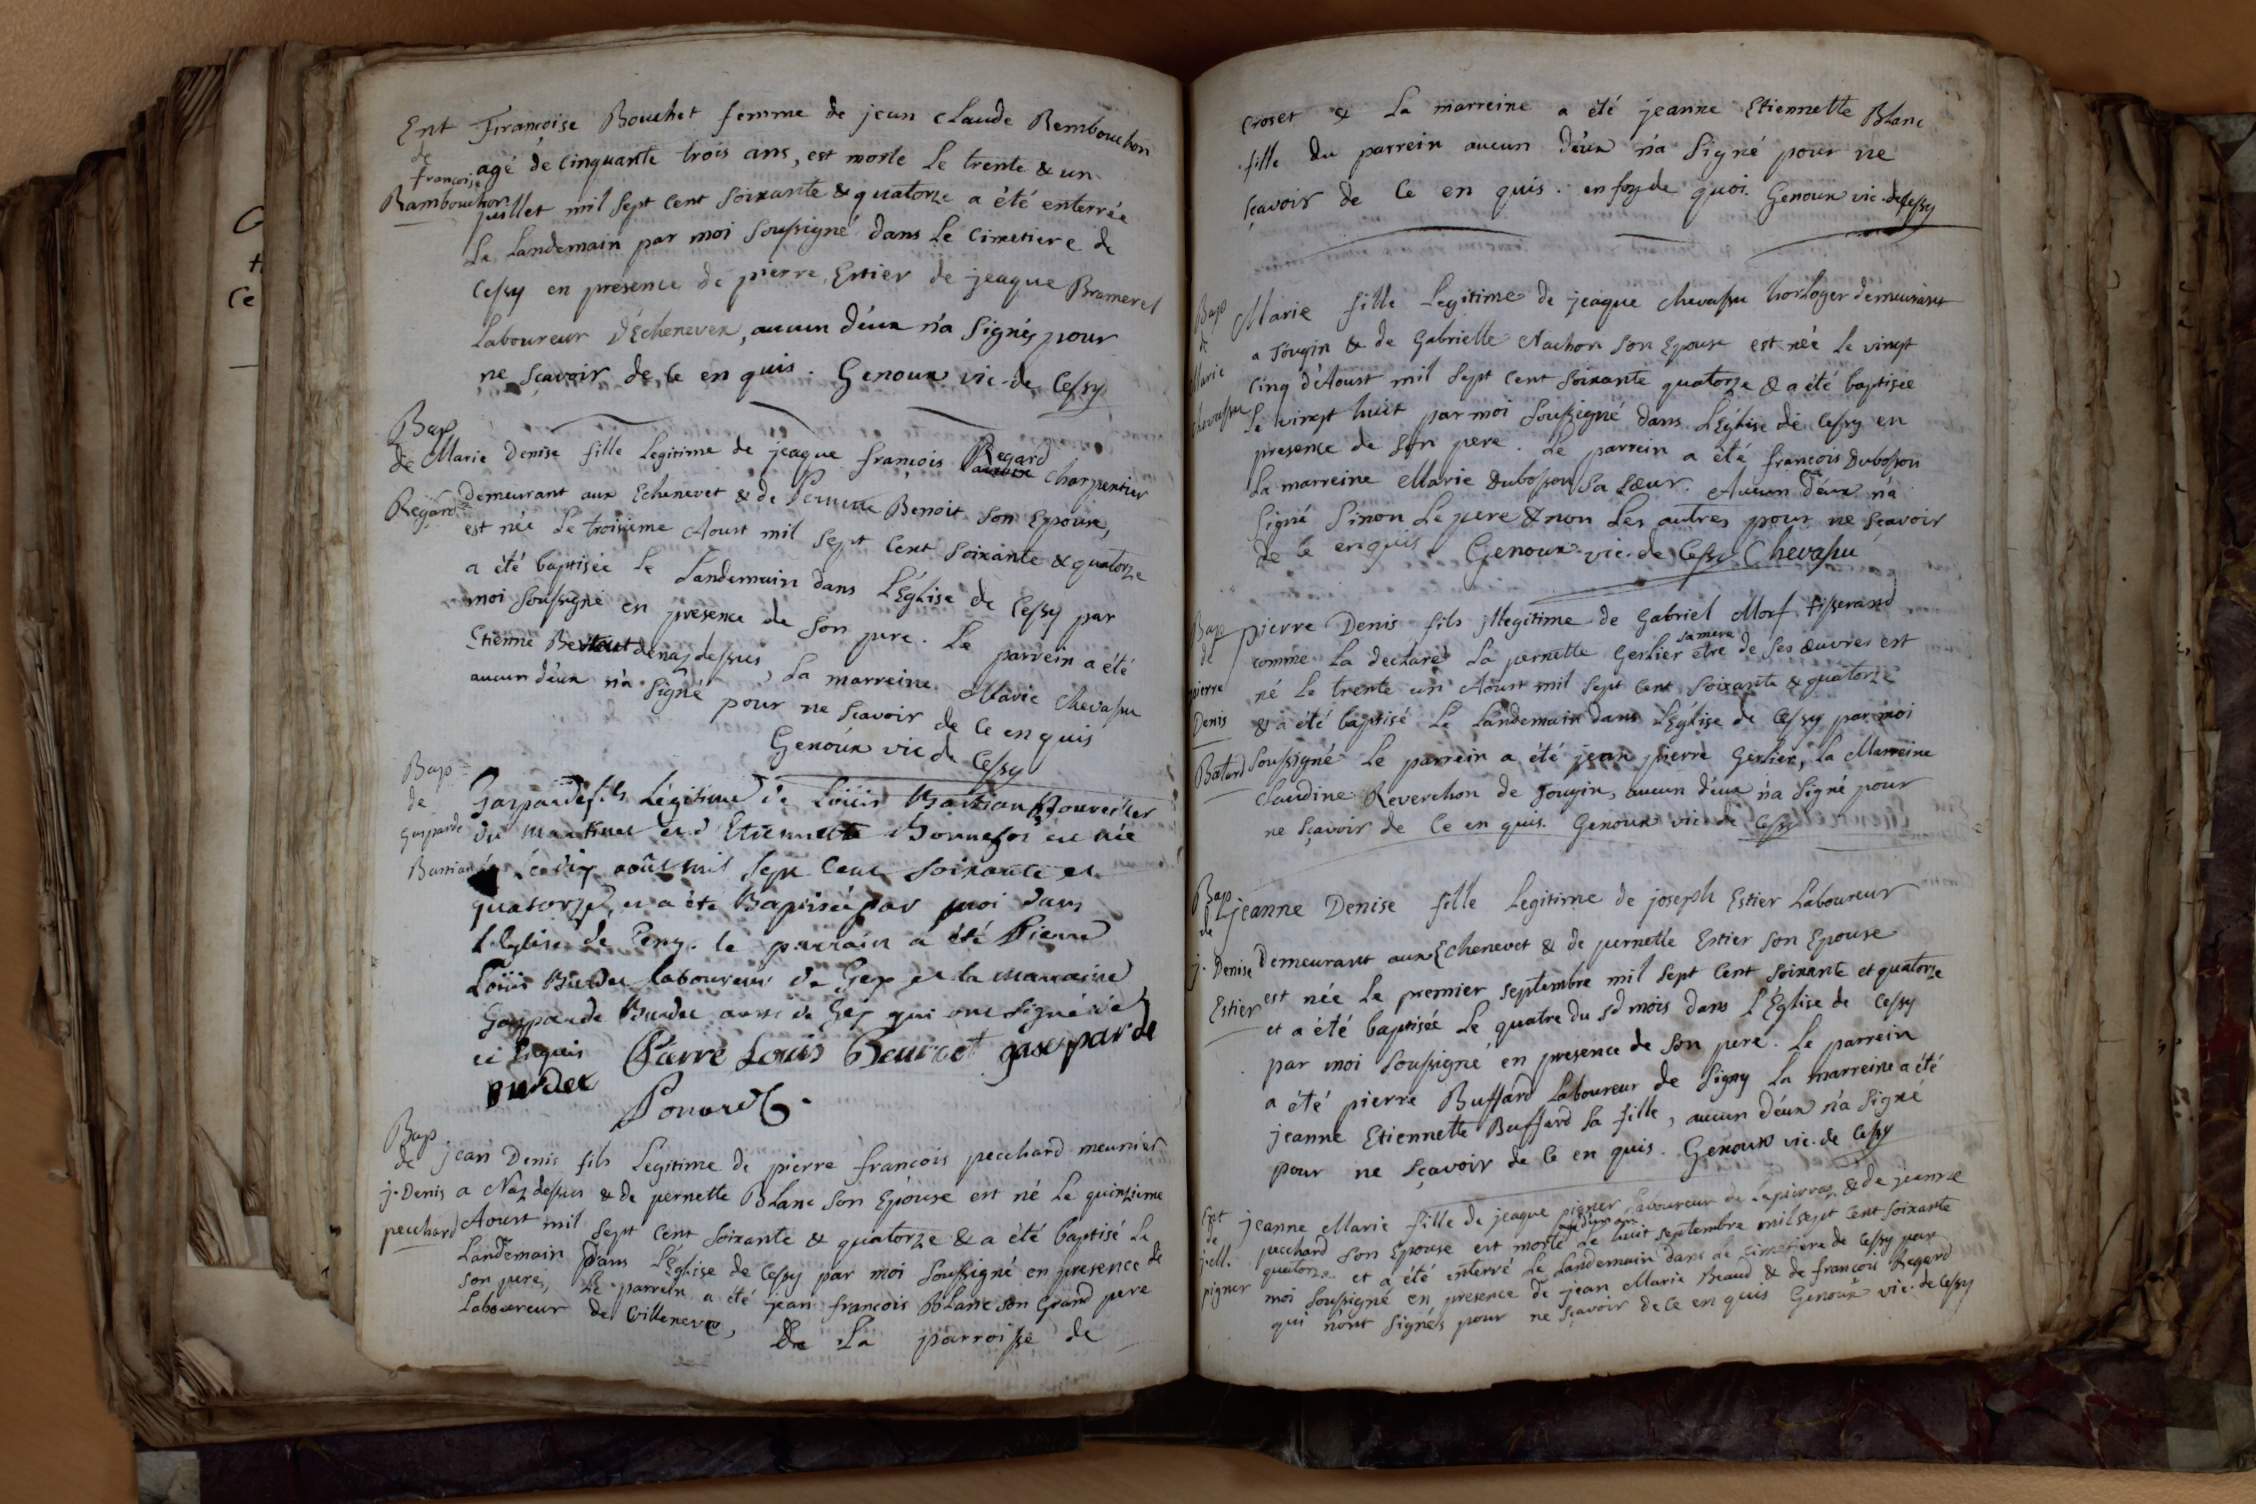 Ent
de
françoise
Rambouchon
Françoise Bouchet femme de jean claude Rembouchon
agé de cinquante trois ans, est morte le trente & un
juillet mil sept cent soixante & quatorze a été enterrée
Le Landemain par moi soussigné dans le cimetiere de
Cessy en presence de pierre Estier de jeaque Brameret
Laboureur d'Echenevex, aucun d'eux n'a signés pour
ne sçavoir de ce en quis. Genoux vic. de Cessy
Bap
de
Regard
Marie Denise fille Legitime de jeaque françois Regard Charpentier
demeurant aux Echenevet & de Pernette Benoit son Epouse,
est née Le troisieme Aoust mil sept cent soixante & quatorze
a été baptisée le Landemain dans L'Église de Cessy par
moi soussigné en presence de son pere. Le parrein a été
Etienne denaz dessus, La marreine Marie Chevassu
aucun d'eux n'a signé pour ne sçavoir de ce en quis
Genoux vic de Cessy
Bap
de
Gasparde
Bastian
Gasparde fils Légitime de Loüis Bastian
du et d'Etiennette Bonnefoi est née
Le dix août mil sept cent soixante et
quatorze, et a été Baptisée par moi dans
L'Eglise de Cessy. le parrain a été Pierre
Loüis Burdet laboureur de Gex et la marraine
Gasparde Burdet aussi de Gex qui ont signé de
ce enquis Pierre Louis Bourdet gasparde
burdet
Ponard
Bap
de
j. Denis
pecchard
jean Denis fils Legitime de pierre françois pecchard meunier
a Naz dessus & de pernette Blanc son Epouse est né Le quinzieme
Aoust mil sept cent soixante & quatorze & a été baptisé Le
Landemain dans L'Église de Cessy par moi soussigné en presence de
son pere, Le parrein a été jean françois Blanc son Grand pere
Laboureur de Villeneve, de La parroisse de
Croset & La marreine a été jeanne Etiennette Blanc
fille du parrein aucun d'eux n'a signé pour ne
sçavoir de ce en quis. en foy de quoi Genoux vic. de Cessy
Bap
de
Marie
Chevassu
Marie fille Legitime de jeaque Chevassu horloger demeurant
a Tougin & de Gabrielle Nachon son Epouse est née Le vingt
cinq d'Aoust mil sept cent soixante quatorze & a été baptisée
Le vingt huit par moi soussigné dans L'Église de Cessy en
presence de son pere. Le parrein a été françois Dubosson
La marreine Marie Dubosson sa sœur. Aucun d'eux n'a
signé sinon Le pere & non Les autres pour ne sçavoir
de ce enquis Genoux vic. de Cessy Chevassu
Bap
de
pierre
Denis
Batard
pierre Denis fils illegitime de Gabriel Morf tisserand
comme La declaré La pernette Gerlier sa mere etre de ses œuvres est
né Le trente un Aoust mil sept cent soixante & quatorze
& a été baptisé Le Landemain dans L'Église de Cessy par moi
soussigné Le parrein a été jean pierre Gerlier, La Marreine
Claudine Reverchon de Tougin, aucun d'eux n'a signé pour
ne sçavoir de ce en quis. Genoux vic. de Cessy
Bap
de
j. Denise
Estier
jeanne Denise fille Legitime de joseph Estier Laboureur
Demeurant aux Echenevet & de pernette Estier son Epouse
est née Le premier septembre mil sept cent soixante et quatorze
et a été baptisée Le quatre du sd mois dans L'Église de Cessy
par moi soussigné en presence de son pere. Le parrein
a été pierre Buffard Laboureur de Signy La marreine a été
jeanne Etiennette Buffard sa fille, aucun d'eux n'a signé
pour ne sçavoir de ce en quis. Genoux vic. de Cessy
Ent
de
pigner
jeanne Marie fille de jeaque pigner Laboureur & de jeanne
pecchard son Epouse est morte Le huit septembre mil sept cent soixante
quatorze et a été enterré Le Landemain dans le cimetiere de Cessy par
moi soussigné en presence de jean Marie & de françois Regard
qui n'ont signés pour ne sçavoir de ce en quis Genoux vic. de Cessy